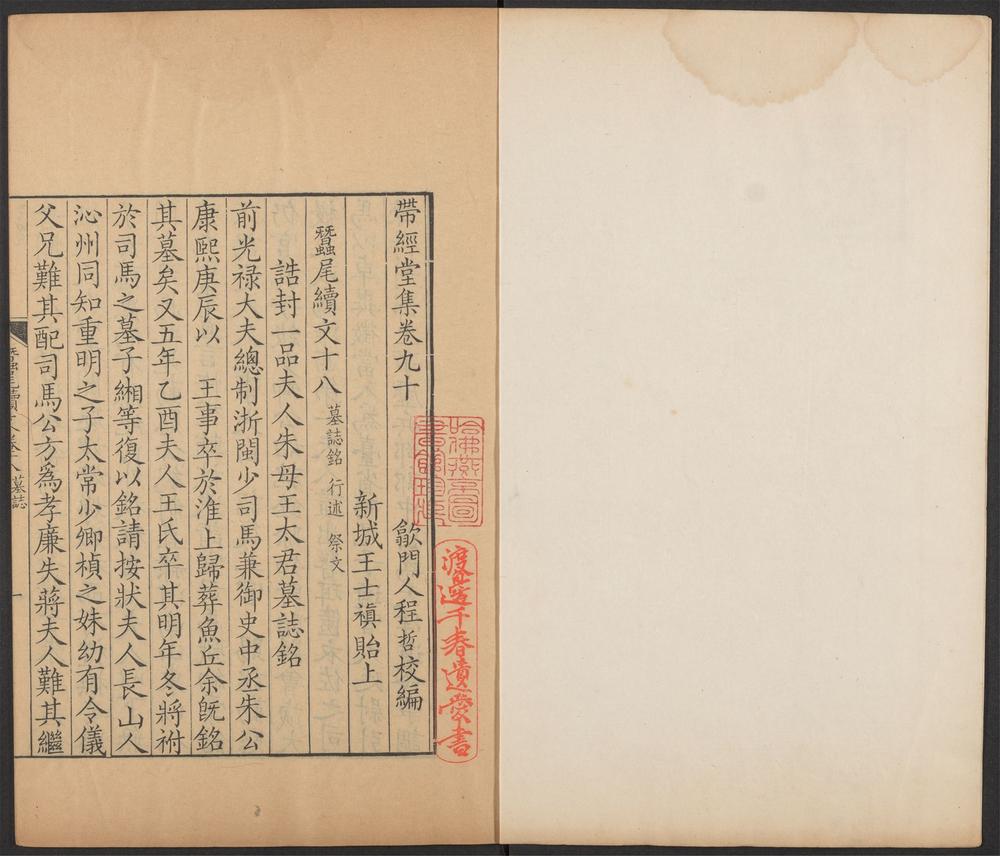 帶經堂集卷九十　歙門人程哲校編
新城王士禛貽上
蠶尾續文十八　墓誌銘　行述　祭文
誥封一品夫人朱母王太君墓誌銘
前光禄大夫總制浙閩少司馬兼御史中丞朱公
康熙庚辰以　王事卒於淮上歸葬魚丘余既銘
其墓矣又五年乙酉夫人王氏卒其明年冬將祔
於司馬之墓子緗等復以銘請按狀夫人長山人
沁州同知重明之子太常少卿楨之妹幼有令儀
父兄難其配司馬公方為孝廉失蔣夫人難其繼
墓誌
一
哈佛燕京圖書館珍藏
渡邊千春遺愛書